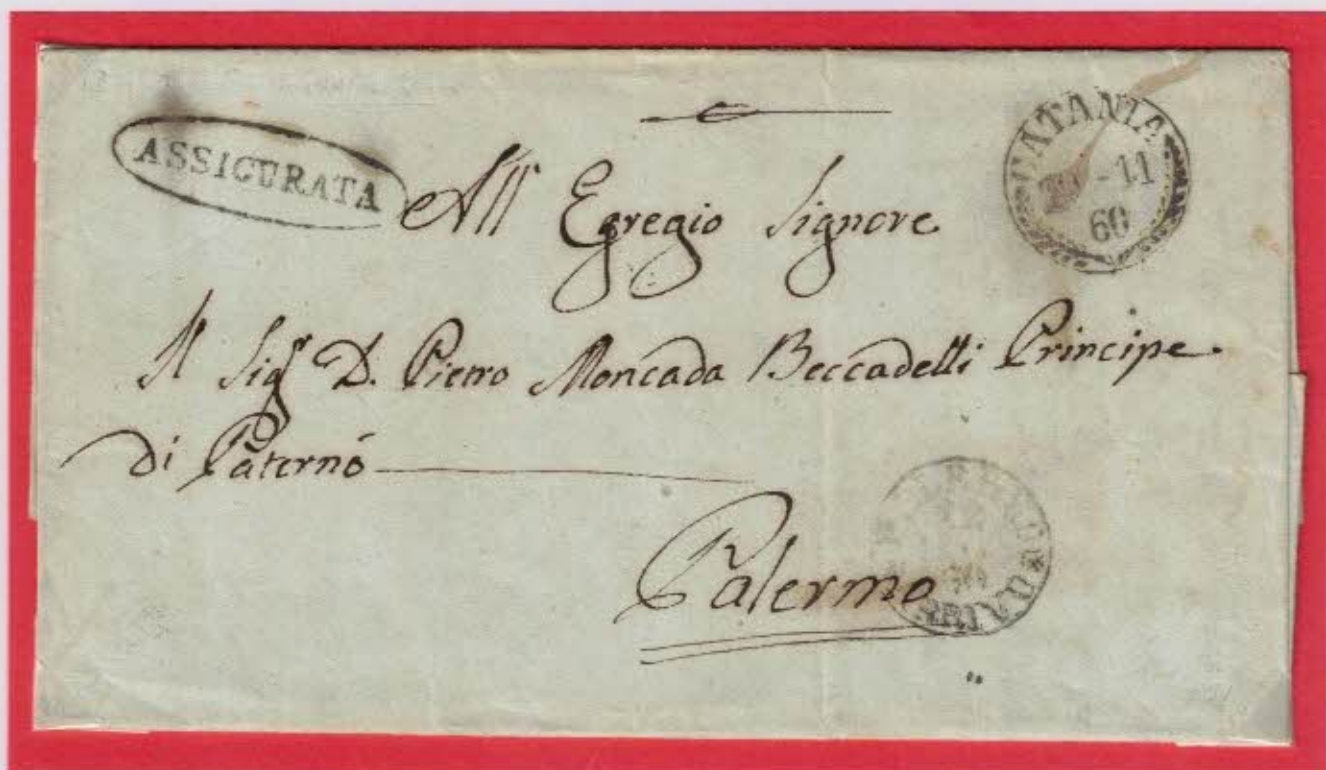 ASSICURATA
CATANIA
-11
60
All' Egregio Signore
Il Sig.r D. Pietro Moncada Beccadelli Principe
di Paternò
Palermo